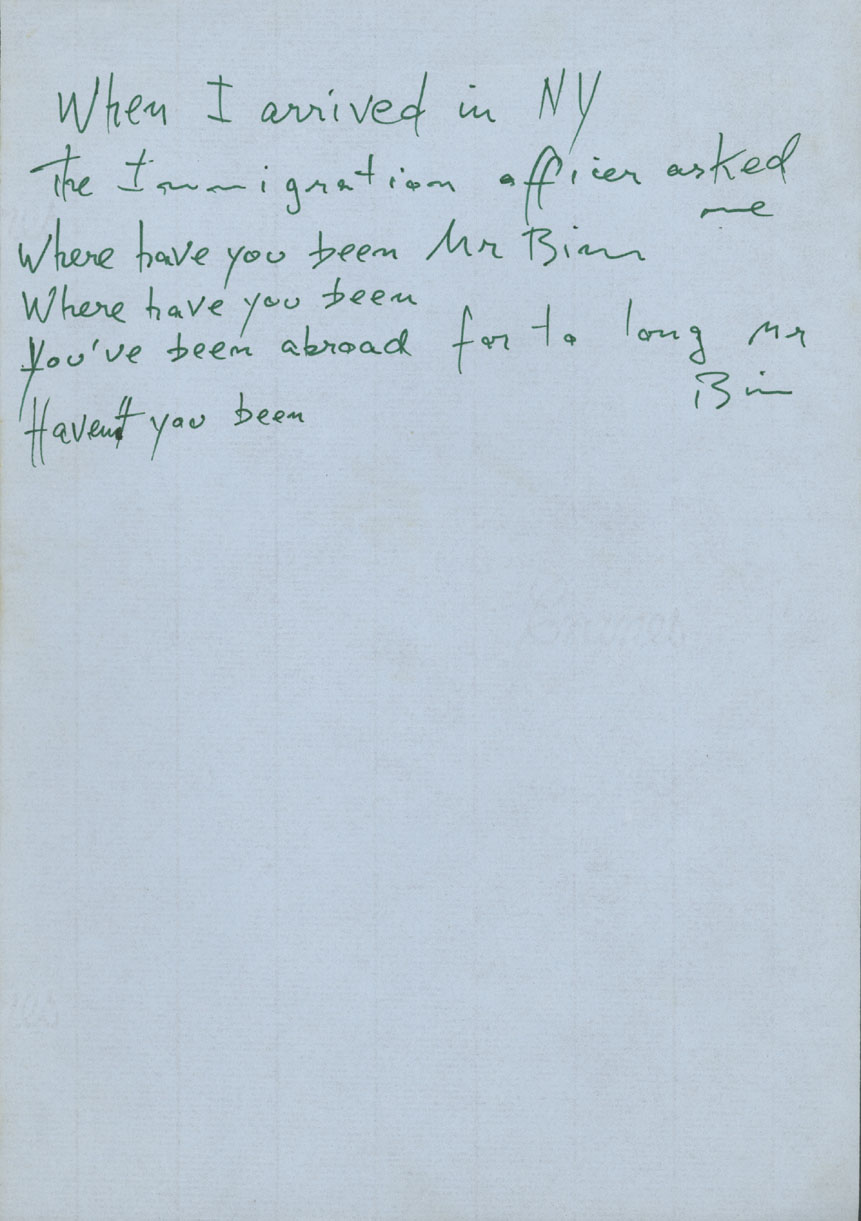 When I arrived in NY
The Immigration officer asked
me
Where have you been Mr Bim
Where have you been
You've been abroad for to long Mr
Bim
Haven't you been